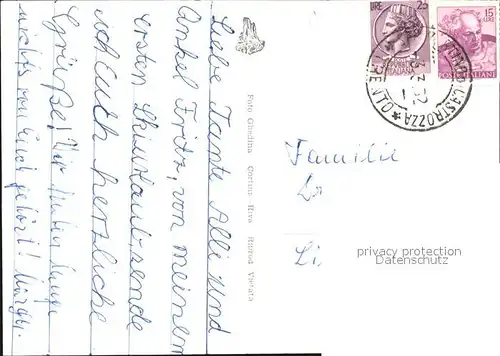 Liebe Tante Alli und
Onkel Fritz, von meinem
ersten Skiurlaub sende
ich Euch herzliche
Grüße! Wir haben lange
nichts von Euch gehört!
Foto Giadina Cortina Riva
Riprod. Vietata
LIRE 25
15
LIRE
ITALIANA
POSTE ITALIANE
CASTROZZA
TRENTO
Familie
Dr
Li
privacy protection
Datenschutz